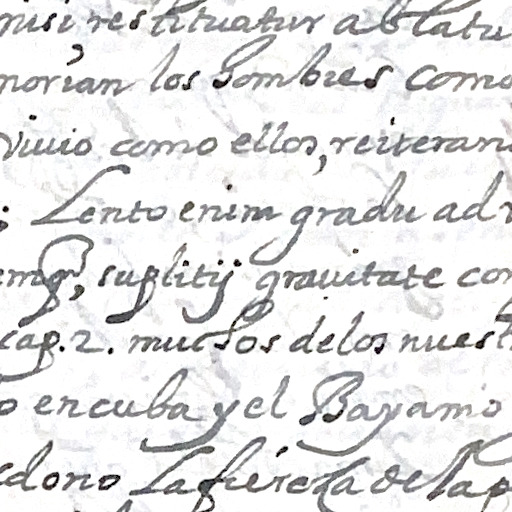 nisi restituatur ablatu
morian los hombres como
viuio como ellos, reiteran
; Lento enim gradu ad v
emqᷓ, suplitij grauitate con
cap. 2. muchos delos nuest
o encuba y el Bayamo
edono La fiereza de la p